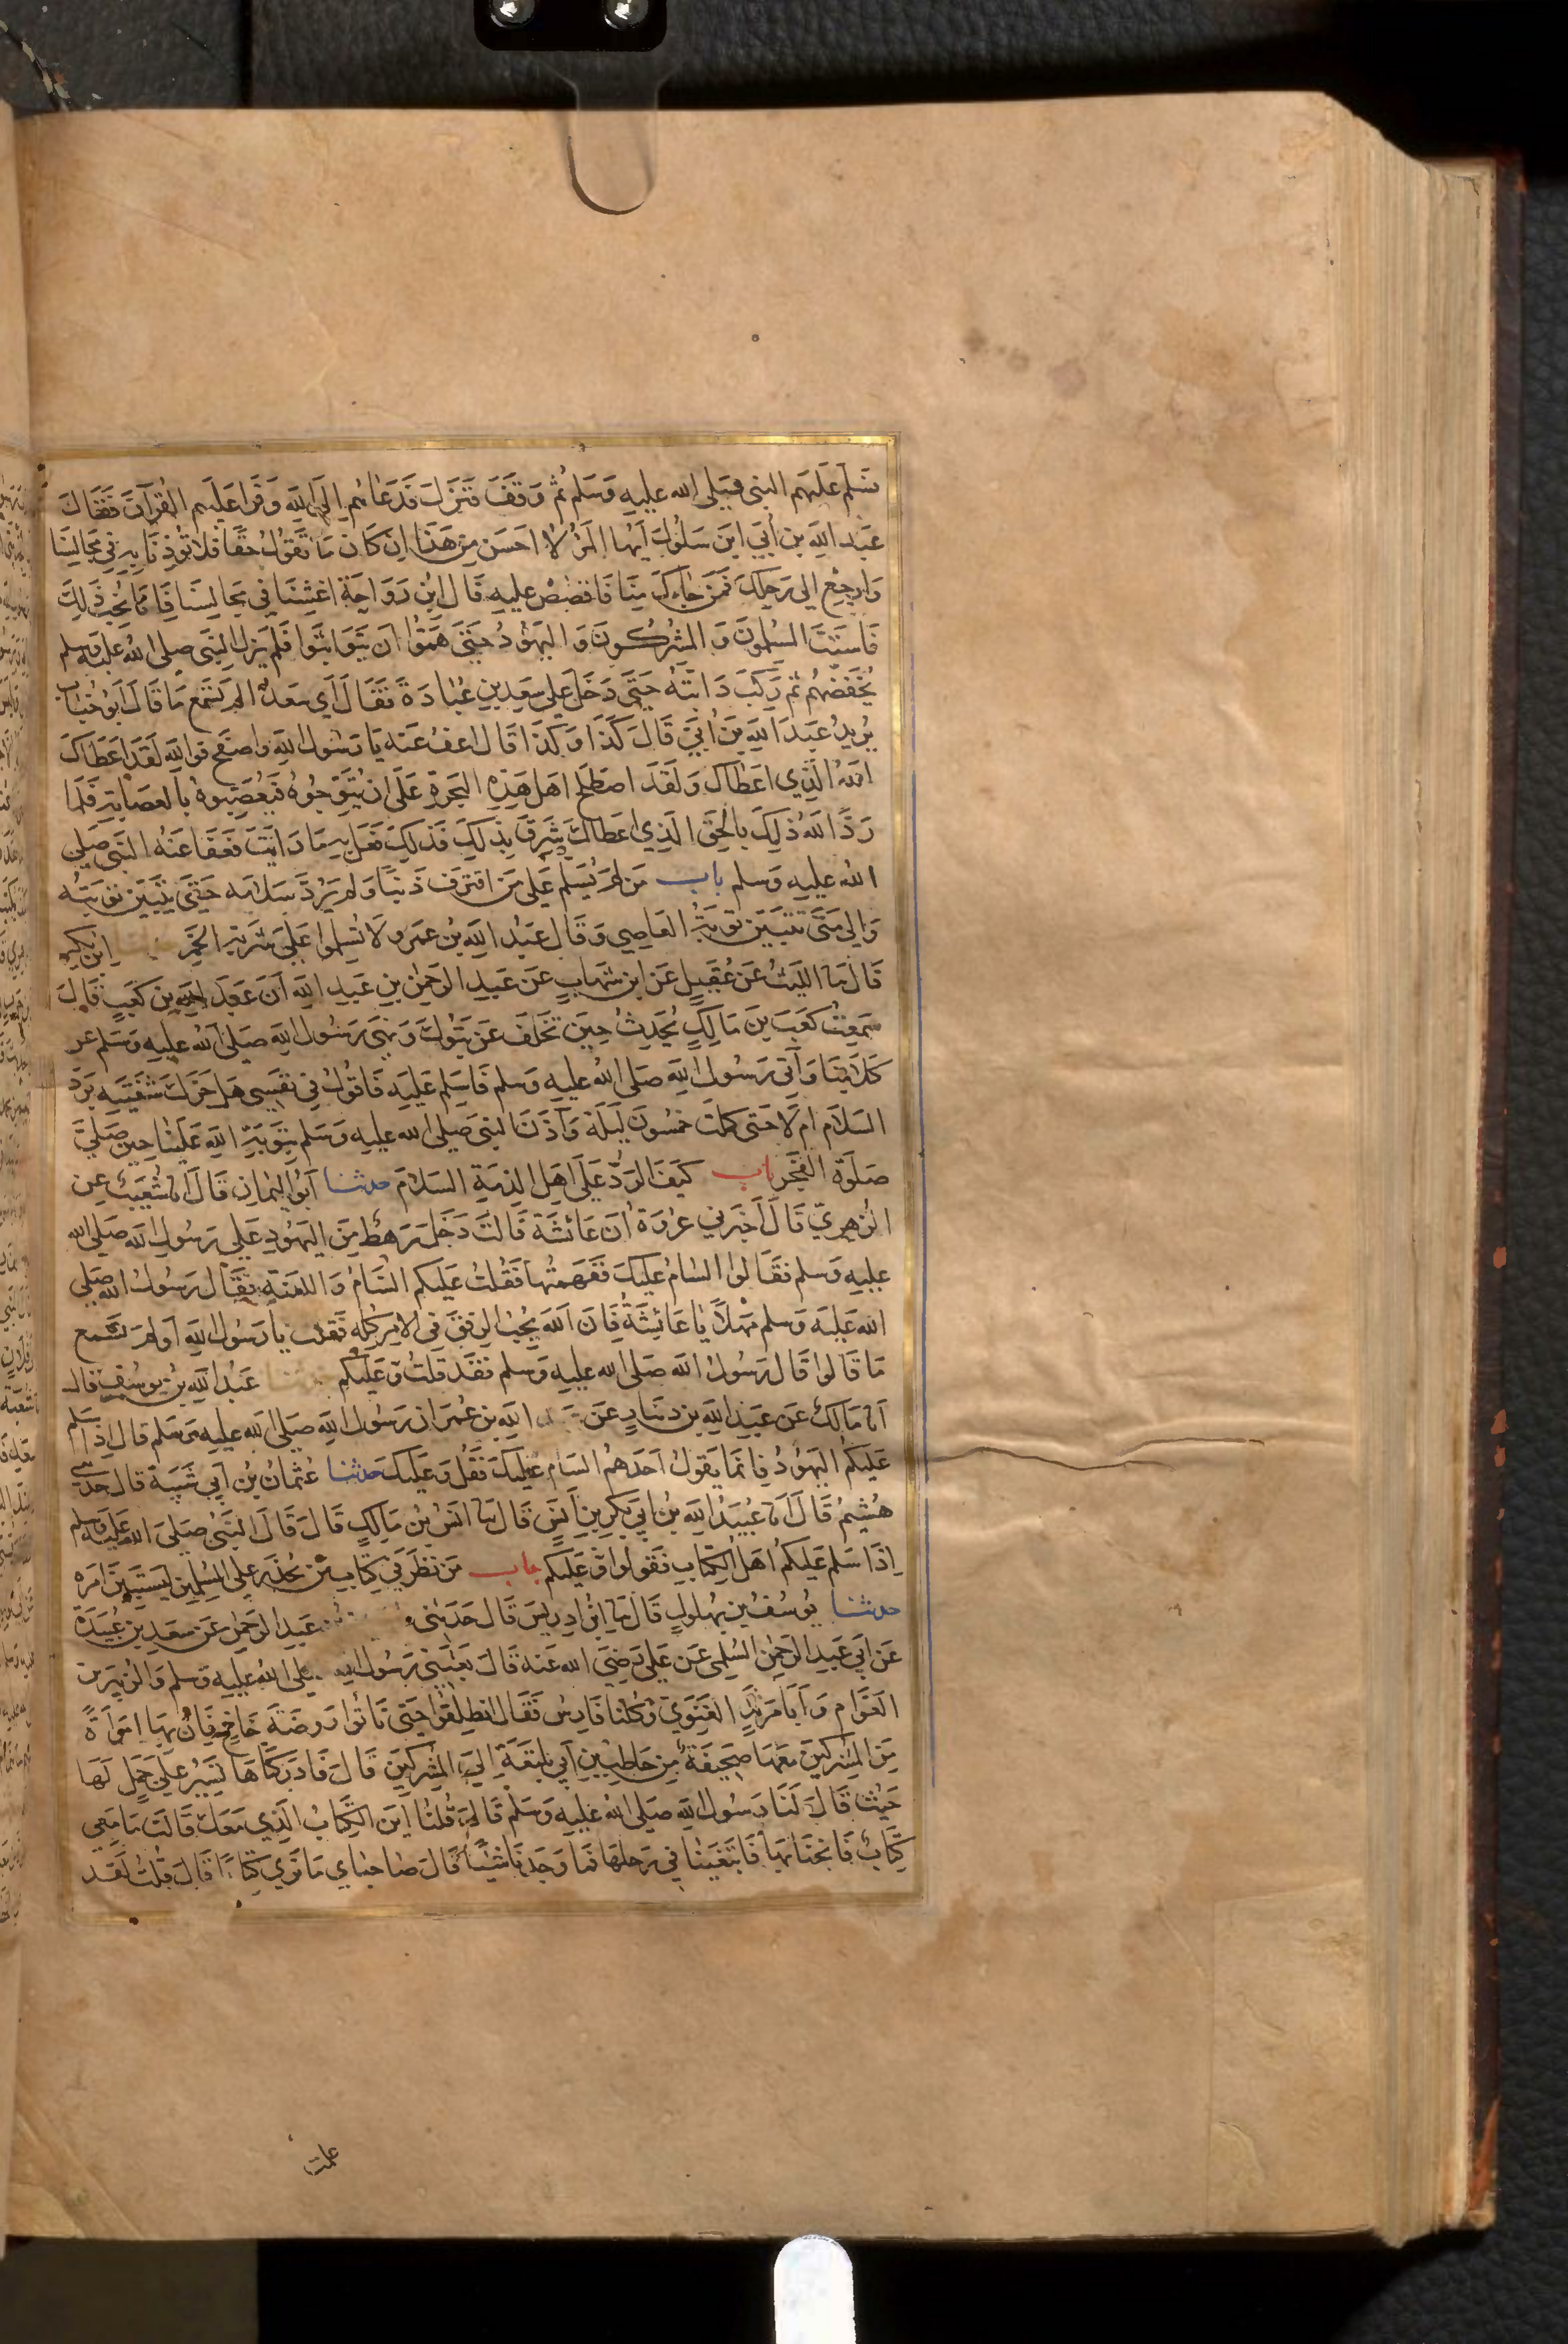 فسلم عليهم النبي صلى الله عليه وسلم ثم وقف فنزل فدعاهم الى الله وقرا عليهم القرآن فقال
عبد الله بن أبي ابن سلول أيها المرؤ لا احسن من هذا ان كان ما تقول حقا فلا تؤذنا به في مجالسنا
وارجع الى رحلك فمن جاءك منا فاقصص عليه قال ابن رواحة اغشنا في مجالسنا فانا نحب ذلك
فاستب المسلمون والمشركون واليهود حتى همّوا ان يتواثبوا فلم يزل النبي صلى الله عليه وسلم
يخفضهم ثم ركب دابته حتى دخل على سعد بن عبادة فقال أي سعد الم تسمع ما قال ابو حباب
يريد عبد الله بن أبيّ قال كذا وكذا قال اعف عنه يا رسول الله واصفح فوالله لقد اعطاك
الله الذي اعطاك ولقد اصطلح اهل هذه البحرة على ان يتوّجوه فيعصبوه بالعصابة فلما
ردّ الله ذلك بالحق الذي اعطاك شرق بذلك فذلك فعل به ما رايت فعفا عنه النبي صلى
الله عليه وسلم باب من لم يسلم على من اقترف ذنبا ولم يردّ سلامه حتى يتبين توبته
والى متى تتبين توبة العاصي وقال عبد الله بن عمرو لا تسلموا على شربة الخمر ابن بكير
قال نا الليث عن عقيل عن ابن شهاب عن عبد الرحمن بن عبد الله أن عبد الله بن كعب قال
سمعت كعب بن مالك يحدث حين تخلف عن تبوك ونهى رسول الله صلى الله عليه وسلم عن
كلامنا وآتي رسول الله صلى الله عليه وسلم فاسلم عليه فاقول في نفسي هل حرك شفتيه برد
السلام ام لا حتى كملت خمسون ليلة وآذن النبي صلى الله عليه وسلم بتوبة الله علينا حين صلى
صلوة الفجر باب كيف الردّ على اهل الذمة السلام حدثنا أبو اليمان قال أنا شعيب عن
الزهري قال أخبرني عروة أن عائشة قالت دخل رهط من اليهود على رسول الله صلى الله
عليه وسلم فقالوا السام عليك ففهمتها فقلت عليكم السام واللعنة فقال رسول الله صلى
الله عليه وسلم مهلا يا عائشة فان الله يحب الرفق في الامر كله فقلت يا رسول الله اولم تسمع
ما قالوا قال رسول الله صلى الله عليه وسلم فقد قلت وعليكم عبد الله بن يوسف قال
أنا مالك عن عبد الله بن دينار عن الله بن عمر ان رسول الله صلى الله عليه وسلم قال اذا سلم
عليكم اليهود فانما يقول احدهم السام عليك فقل وعليك حدثنا عثمان بن أبي شيبة قال حدثني
هشيم قال أنا عبيد الله بن ابي بكر بن أنس قال نا انس بن مالك قال قال النبي صلى الله عليه وسلم
اذا سلم عليكم اهل الكتاب فقولوا وعليكم باب من نظر في كتاب من يحذر على المسلمين ليستبين امره
حدثنا يوسف بن بهلول قال نا ابن ادريس قال حدثني عبد الرحمن عن سعد بن عبيدة
عن ابي عبد الرحمن السلمي عن علي رضي الله عنه قال بعثني رسول الله صلى الله عليه وسلم والزبير بن
العوام وأبا مرثد الغنوي وكلنا فارس فقال انطلقوا حتى تاتوا روضة خاخ فان بها امراة
من المشركين معها صحيفة من حاطب بن ابي بلتعة الى المشركين قال فادركناها تسير على جمل لها
حيث قال لنا رسول الله صلى الله عليه وسلم قال قلنا اين الكتاب الذي معك قالت ما معي
كتاب فانخنا بها فابتغينا في رحلها فما وجدنا شيئا قال صاحباي ما نرى كتابا قال قلت لقد
علمت